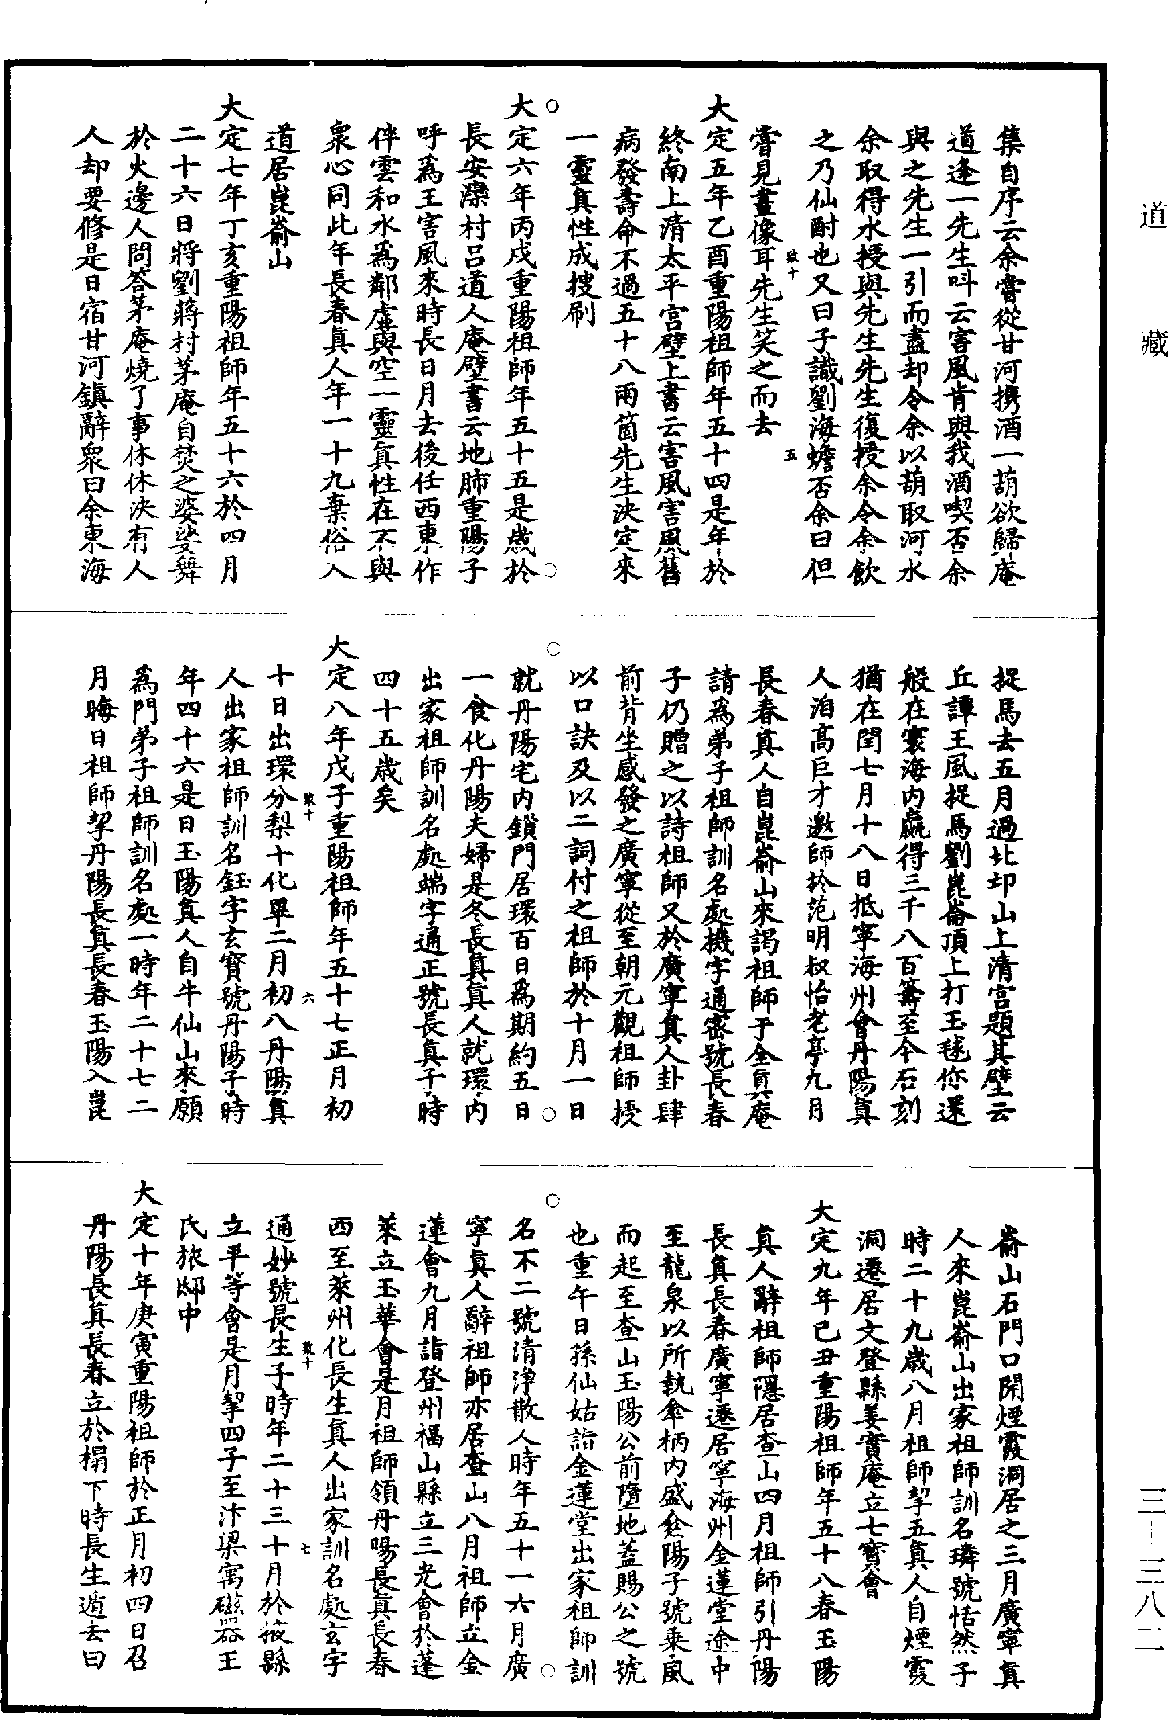 集自序云余嘗從甘河擕酒一葫欲歸庵
道逢一先生呌云害風肯與我酒喫否余
與之先生一引而盡却令余以葫取河水
余取得水授與先生先生復授余令余飲
之乃仙酎也又曰子識劉海蟾否余曰但
嘗見畫像耳先生笑之而去
大定五年乙酉重陽祖師年五十四是年於
終南上清太平宮壁上書云害風害風舊
病發壽命不過五十八兩箇先生決定來
一靈真性成搜刷
大定六年丙戌重陽祖師年五十五是歲於
長安灤村呂道人庵壁書云地肺重陽子
呼爲王害風來時長日月去後任西東作
伴雲和水爲鄰虛與空一靈真性在不與
衆心同此年長春真人年一十九棄俗入
道居崑崳山
大定七年丁亥重陽祖師年五十六於四月
二十六日將劉蔣村茅庵自焚之婆娑舞
於火邊人問答茅庵燒了事休休決有人
人却要修是日宿甘河鎮辭衆曰余東海
捉馬去五月過北邙山上清宮題其壁云
丘譚王風捉馬劉崑崙頂上打玉毬你還
般在寰海內贏得三千八百籌至今石刻
猶在閏七月十八日抵寧海州會丹陽真
人洎高巨才邀師於范明叔怡老亭九月
長春真人自崑崳山來謁祖師于全真庵
請爲弟子祖師訓名處機字通密號長春
子仍贈之以詩祖師又於廣寧真人卦肆
前背坐感發之廣寧從至朝元觀祖師授
以口訣及以二詞付之祖師於十月一日
就丹陽宅內鎖門居環百日爲期約五日
一食化丹陽夫婦是冬長真真人就環內
出家祖師訓名處端字通正號長真子時
四十五歲矣
大定八年戊子重陽祖師年五十七正月初
十日出環分梨十化畢二月初八丹陽真
人出家祖師訓名鈺字玄寶號丹陽子時
年四十六是日玉陽真人自牛仙山來願
爲門弟子祖師訓名處一時年二十七二
月晦日祖師挈丹陽長真長春玉陽入崑
崳山石門口開煙霞洞居之三月廣寧真
人來崑崳山出家祖師訓名璘號恬然子
時二十九歲八月祖師挈五真人自煙霞
洞遷居文登縣姜實庵立七寶會
大定九年己丑重陽祖師年五十八春玉陽
真人辭祖師隱居查山四月祖師引丹陽
長真長春廣寧遷居寧海州金蓮堂途中
至龍泉以所執傘柄內盛傘陽子號乘風
而起至查山玉陽公前墮地蓋賜公之號
也重午日孫仙姑詣金蓮堂出家祖師訓
名不二號清淨散人時年五十一六月廣
寧真人辭祖師亦居查山八月祖師立金
蓮會九月詣登州福山縣立三光會於蓬
萊立玉華會是月祖師領丹陽長真長春
西至萊州化長生真人出家訓名處玄字
通妙號長生子時年二十三十月於掖縣
立平等會是月挈四子至汴梁寓磁器王
氏旅邸中
大定十年庚寅重陽祖師於正月初四日召
丹陽長真長春立於榻下時長生遁去曰
道藏
三—三八二